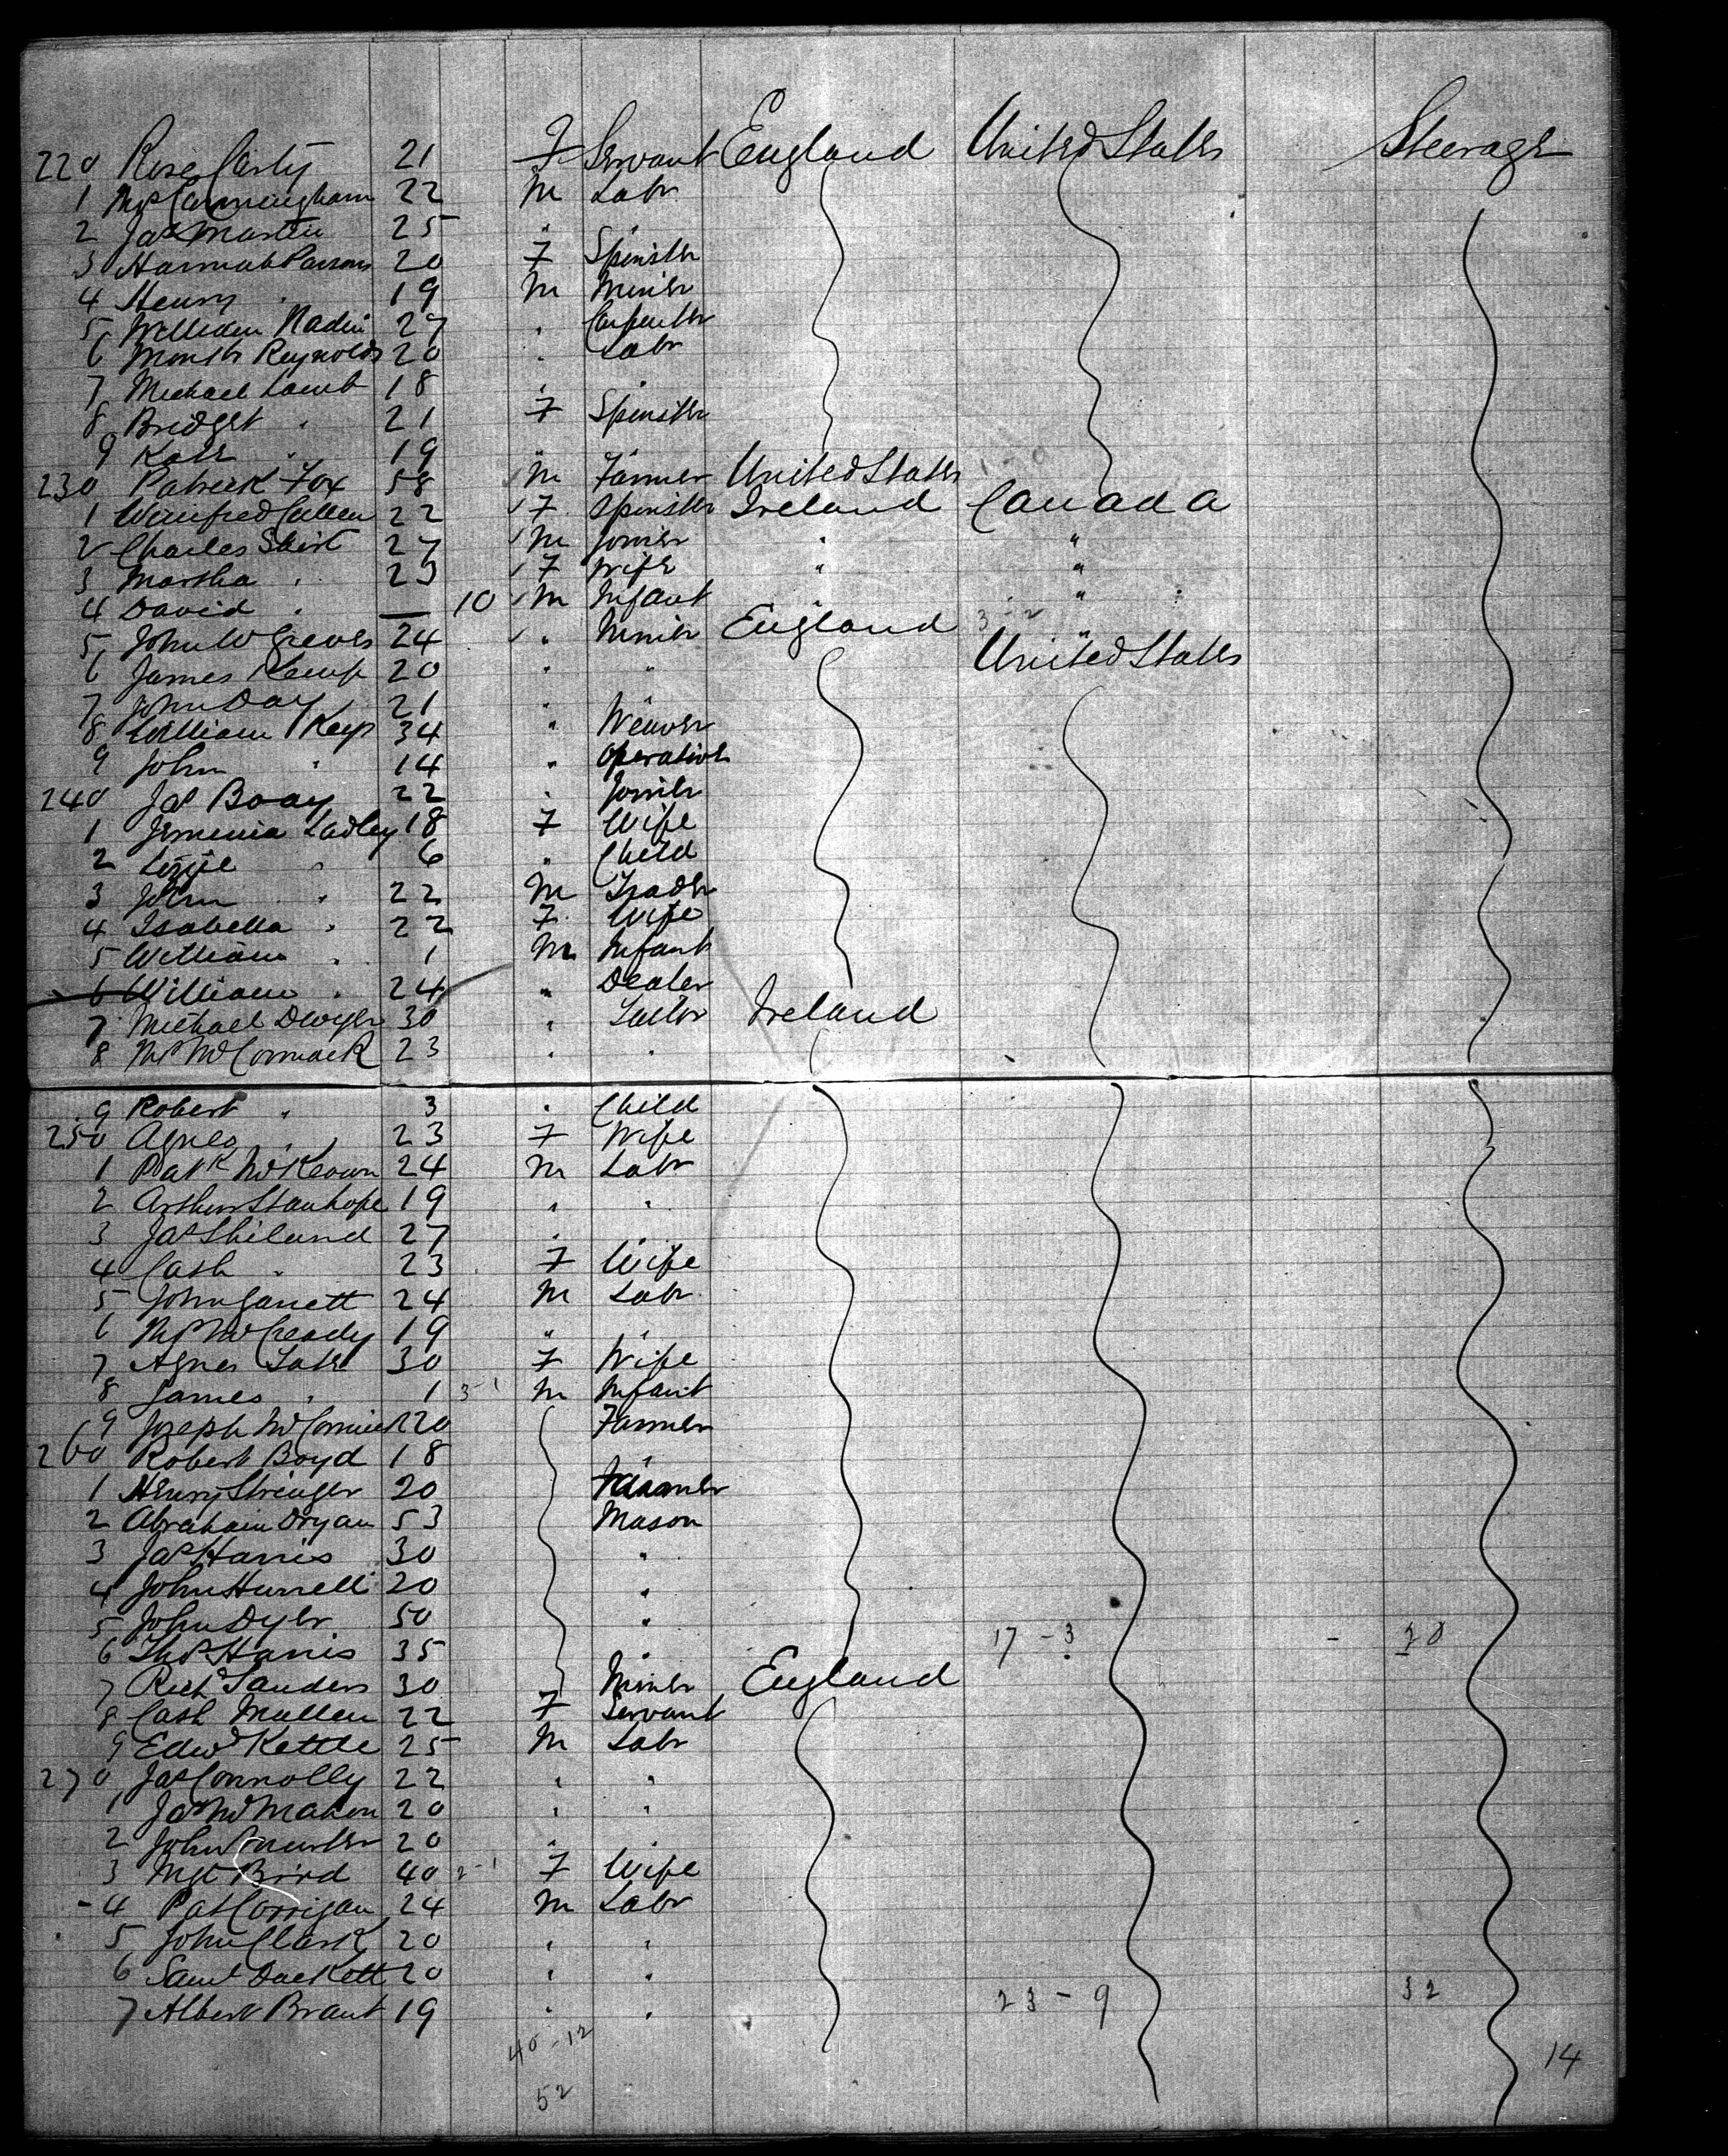 220 Rose Carty 21 F Servant England United States Steerage
1 Ms Cunningham 22 M Labr
2 Jas Martin 25 " "
3 Hannah Parsons 20 F Spinster
4 Henry " 19 M Miner
5 William Nadin 27 " Carpenter
6 Reynolds 20 " Labr
7 Michael Lamb 18 " "
8 Bridget " 21 F Spinster
9 Kate " 19 " "
230 Patrick Fox 58 M Farmer United States
1 Winifred Cullen 22 F Spinster Ireland Canada
2 Charles 27 M Joiner " "
3 Martha " 23 F Wife " "
4 David " — 10 M Infant " "
5 John W Greves 24 " Miner England "
6 James Kemp 20 " " United States
7 John Day 21 " "
8 William Keys 34 " Weaver
9 John " 14 " Operative
240 Jas Boay 22 " Joiner
1 Jemenia Ladley 18 F Wife
2 Lizzie " 6 " Child
3 John " 22 M Trader
4 Isabella " 22 F Wife
5 William " 1 M Infant
6 William " 24 " Dealer
7 Michael Dwyer 30 " Ireland
8 McCormack 23 " "
9 Robert " 3 " Child
250 Agnes " 23 F Wife
1 Patk McKeown 24 M Labr
2 Arthur Stanhope 19 " "
3 Jas Shiland 27 " "
4 Cath " 23 F Wife
5 John Garrett 24 M Labr
6 McCready 19 " "
7 Agnes Tate 30 F Wife
8 James " 1 3-1 M Infant
9 Joseph McCormick 20 Farmer
260 Robert Boyd 18 "
1 Henry Stringer 20
2 Abraham Dryan 53 Mason
3 Jas Harris 30 "
4 John Hurrell 20 "
5 John Dyer 50 "
6 Thos Harris 35 " 17 - 3 - 20
7 Richd Sanders 30 Miner England
8 Cath Mullen 22 F Servant
9 Edwd Kettle 25 M Labr
270 Jas Connolly 22 " "
1 Jas McMahon 20 " "
2 John 20 " "
3 Mgt Bird 40 2-1 F Wife
4 Pat Corrigan 24 M Labr
5 John Clark 20 " "
6 Saml Duckett 20 " "
7 Albert Brant 19 " " 23 - 9 32
40-12
52
14